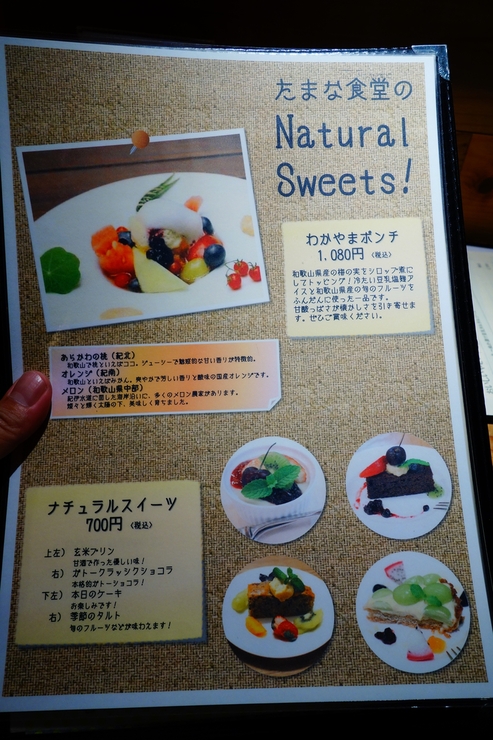 たまな食堂の
Natural
Sweets!
わかやまポンチ
1,080円 〈税込〉
和歌山県産の梅の実をシロップ煮に
してトッピング！冷たい豆乳塩麹ア
イスと和歌山県産の旬のフルーツを
ふんだんに使った一品です。
甘酸っぱさが懐かしさを引き寄せま
す。ぜひご賞味ください。
あらかわの桃（紀北）
和歌山で桃といえばココ。ジューシーで魅惑的な甘い香りが特徴的。
オレンジ（紀南）
和歌山といえばみかん。爽やかで芳しい香りと酸味の国産オレンジです。
メロン（和歌山県中部）
紀伊水道に面した海岸沿いに、多くのメロン農家があります。
燦々と輝く太陽の下、美味しく育ちました。
ナチュラルスイーツ
700円 〈税込〉
上左） 玄米プリン
甘酒で作った優しい味！
右） ガトークラッシクショコラ
本格的ガトーショコラ！
下左） 本日のケーキ
お楽しみです！
右） 季節のタルト
旬のフルーツなどが味わえます！